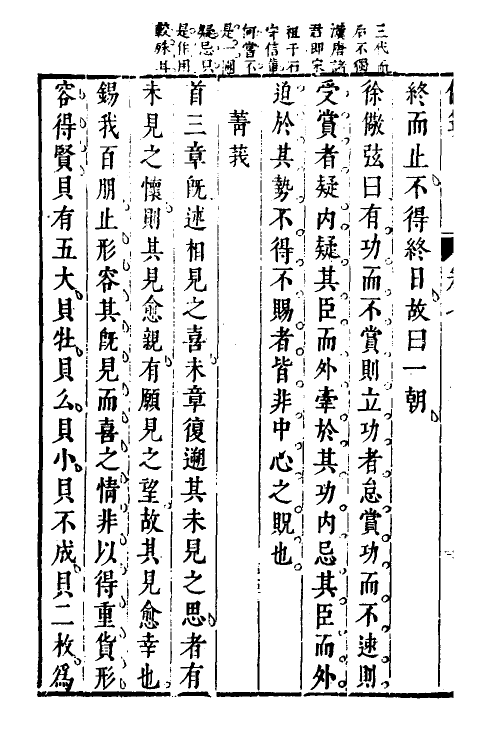 三代而
后不獨
漢唐諸
君即宋
祖于石
守信軰
何嘗不
是一遡
疑忌只
是作用
較殊耳
終而止不得終日故曰一朝
徐儆弦曰有功而不賞則立功者怠賞功而不速則
受賞者疑内疑其臣而外牽於其功内忌其臣而外
迫於其勢不得不賜者皆非中心之貺也
菁莪
首三章旣述相見之喜末章復遡其未見之思者有
未見之懷則其見愈親有願見之望故其見愈幸也
錫我百朋止形容其旣見而喜之情非以得重貨形
容得賢貝有五大貝牡貝么貝小貝不成貝二枚爲